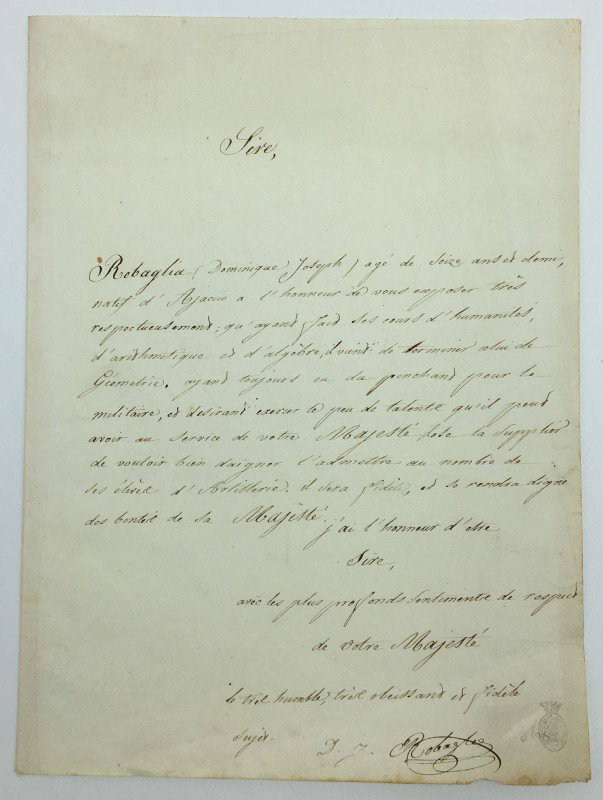 Sire,
Robaglia (Dominique Joseph) agé de Seize ans et demi,
natif d'Ajaccio a l'honneur de vous exposer très
respectueusement; qu'ayant fait ses cours d'humanités,
d'arithmetique et d'algèbre, il vient de terminer celui de
Géometrie. ayant toujours eu du penchant pour le
militaire, et desirant exercer le peu de talents qu'il peut
avoir au Service de votre Majesté, ose la Supplier
de vouloir bien daigner l'admettre au nombre de
ses élèves d'Artillerie. il sera fidèle, et se rendra digne
des bontés de Sa Majesté. j'ai l'honneur d'etre
Sire,
avec les plus profonds Sentiments de respect
de votre Majesté
le très humble, très obeissant et fidèle
Sujet. D. J. Robaglia